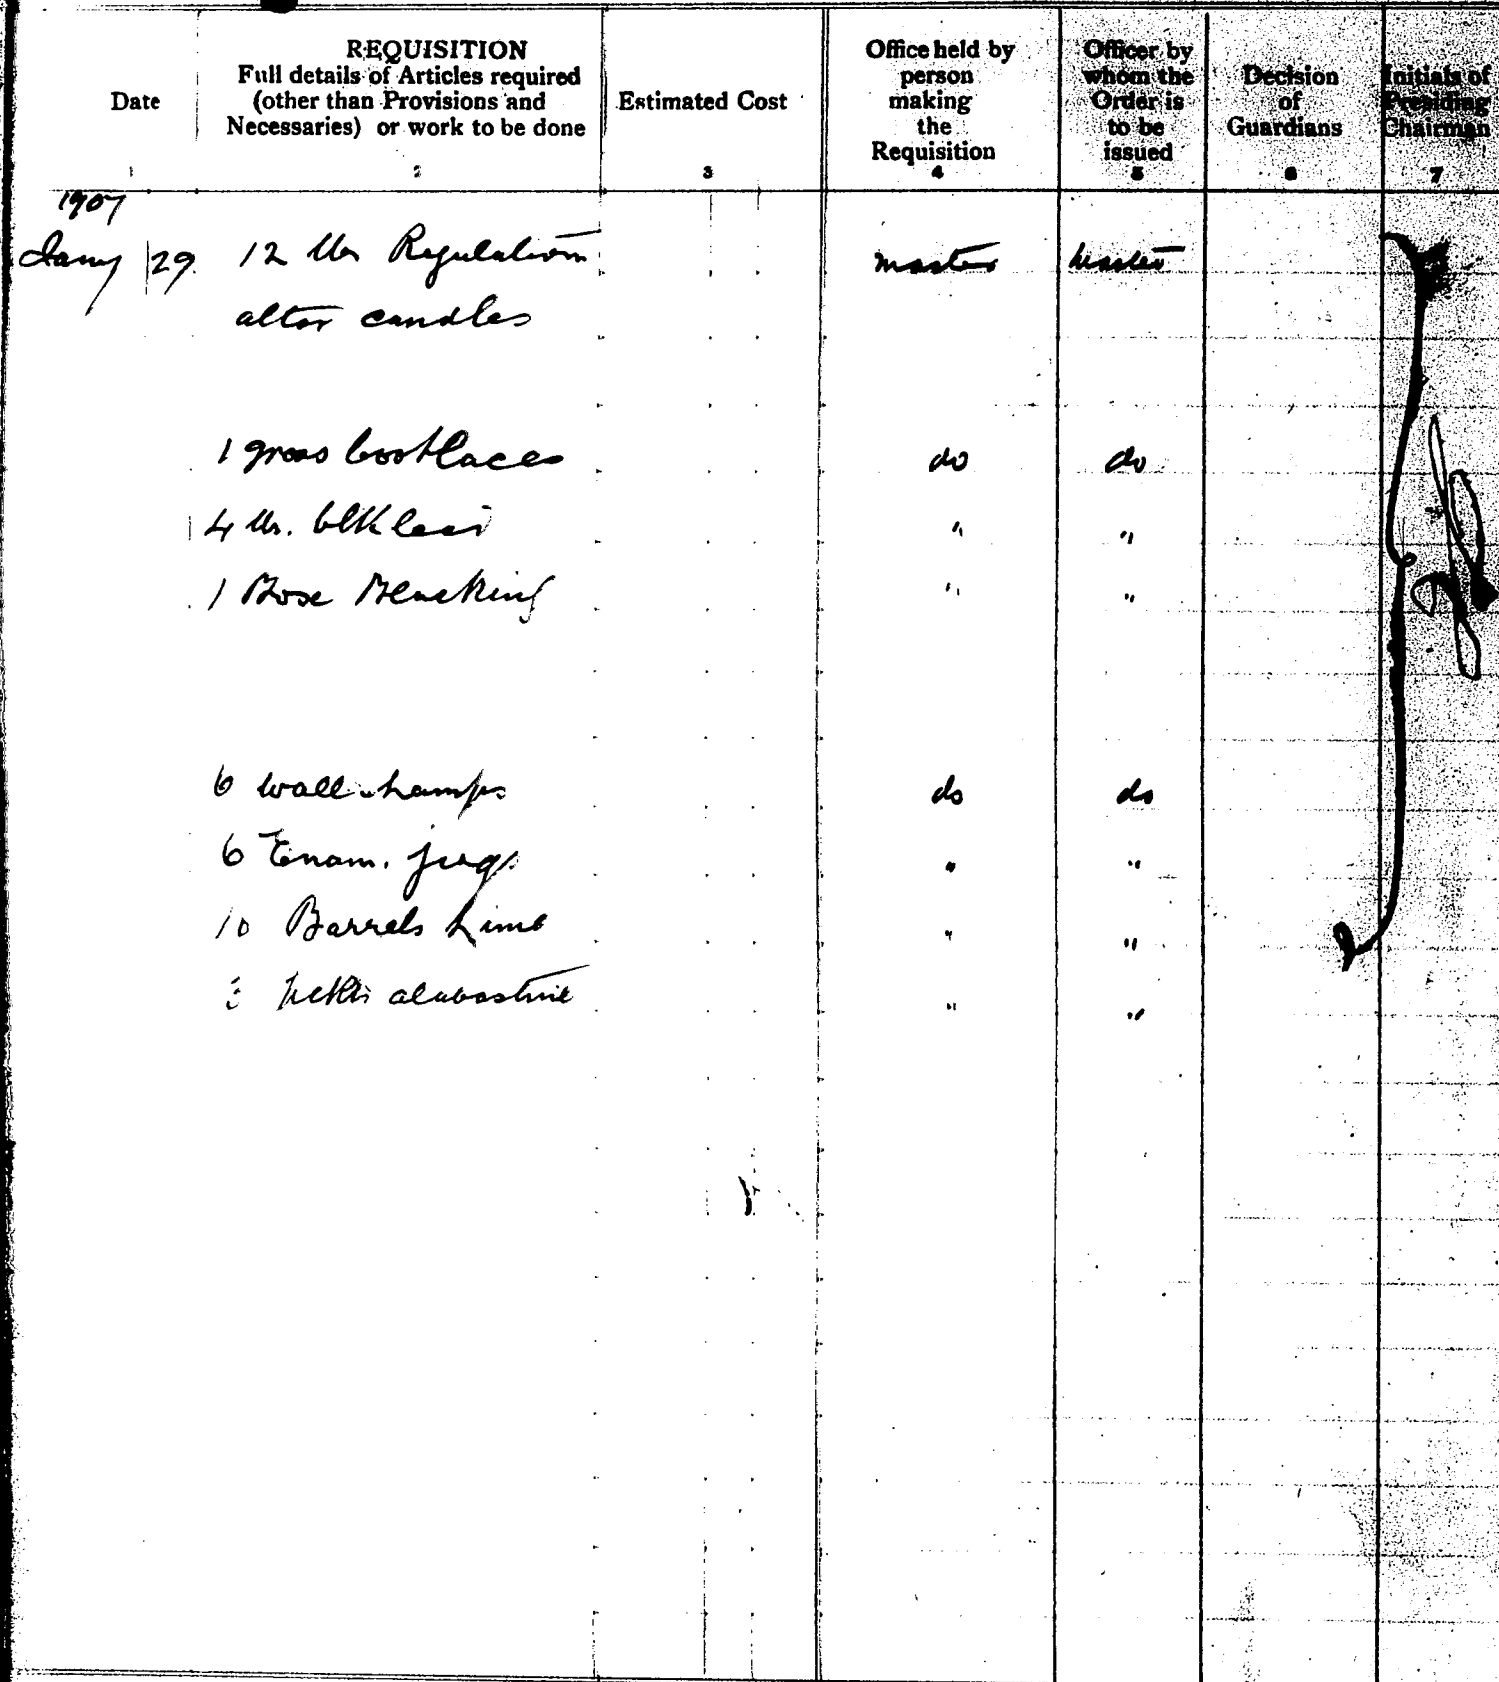 Date
REQUISITION
Full details of Articles required
(other than Provisions and
Necessaries) or work to be done
Estimated Cost
Office held by
person
making
the
Requisition
Officer by
whom the
Order is
to be
issued
Decision
of
Guardians
Initials of
Presiding
Chairman
1 2 3 4 5 6 7
1907
Jany 29 12 lbs Regulation master master
altar candles
1 gross bootlaces do do
4 lbs. blk lead " "
1 Box Blacking " "
6 wall Lamps do do
6 Enam. jugs " "
10 Barrels Lime " "
alabastine " "